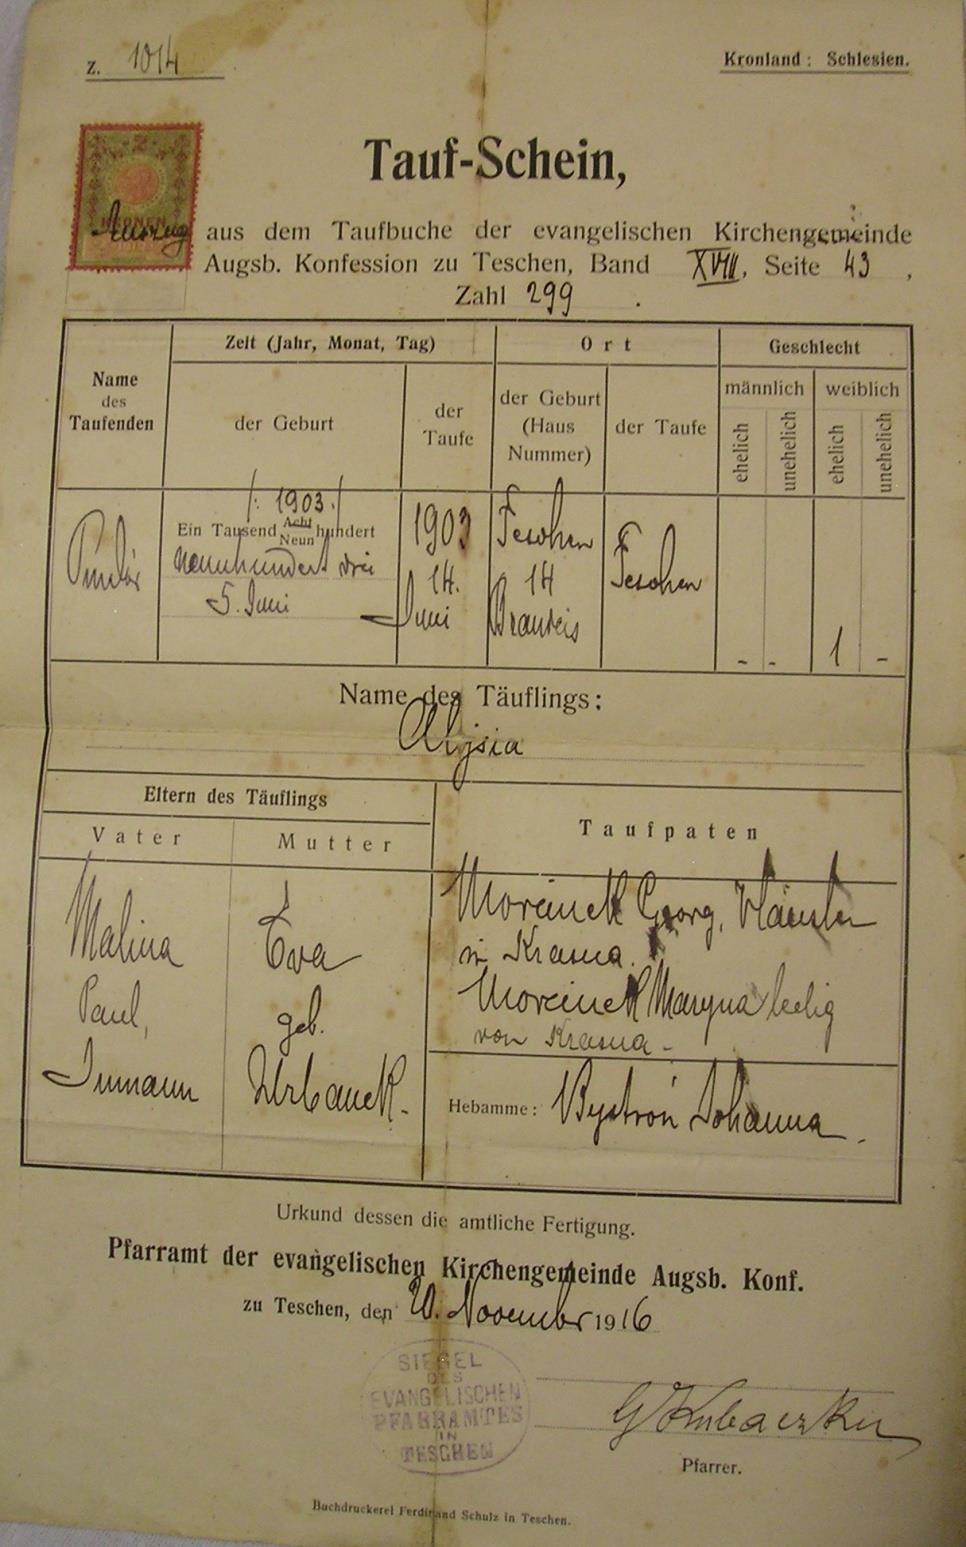 Z. 1014
Kronland: Schlesien.
Tauf-Schein,
KRONEN
Auszug aus dem Taufbuche der evangelischen Kirchengemeinde
Augsb. Konfession zu Teschen, Band XVIII, Seite 43,
Zahl 299.
Name des Taufenden
Zeit (Jahr, Monat, Tag)
der Geburt
der Taufe
Ort
der Geburt (Haus Nummer)
der Taufe
Geschlecht
männlich
weiblich
ehelich
unehelich
ehelich
unehelich
Pindór
/: 1903 :/
Ein Tausend Acht Neun hundert
neunhundert drei
5. Juni
1903
14.
Juni
Teschen
14
Brandeis
Teschen
- - 1 -
Name des Täuflings:
Alojsia
Eltern des Täuflings
Vater
Mutter
Taufpaten
Malina
Paul,
Inmann
Eva
geb.
Urbanek.
Moreinek Georg, Häusler
in Krasna.
Moreinek Maryna ledig
von Krasna -
Hebamme: Bystroń Johanna.
Urkund dessen die amtliche Fertigung.
Pfarramt der evangelischen Kirchengemeinde Augsb. Konf.
zu Teschen, den 20. November 1916
SIEGEL
DES
EVANGELISCHEN
PFARRAMTES
IN
TESCHEN
Pfarrer.
Buchdruckerei Ferdinand Schulz in Teschen.